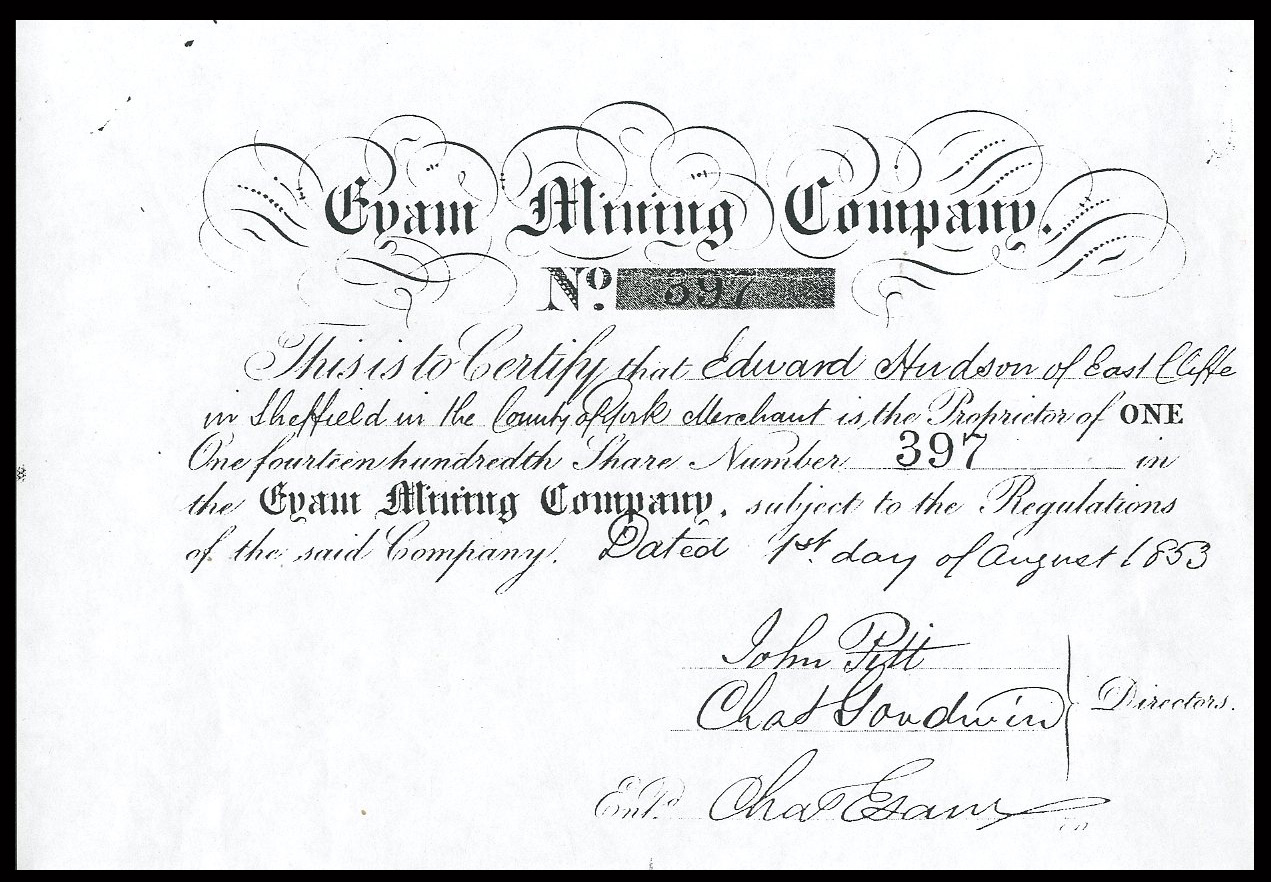 Eyam Mining Company.
No. 397
This is to Certify that Edward Hudson of East Cliffe
in Sheffield in the County of York Merchant is the Proprietor of ONE
One fourteen hundredth Share Number 397 in
the Eyam Mining Company, subject to the Regulations
of the said Company. Dated 1st day of August 1853
John Pitt
Chas Goodwin
Directors.
Entd. Chas